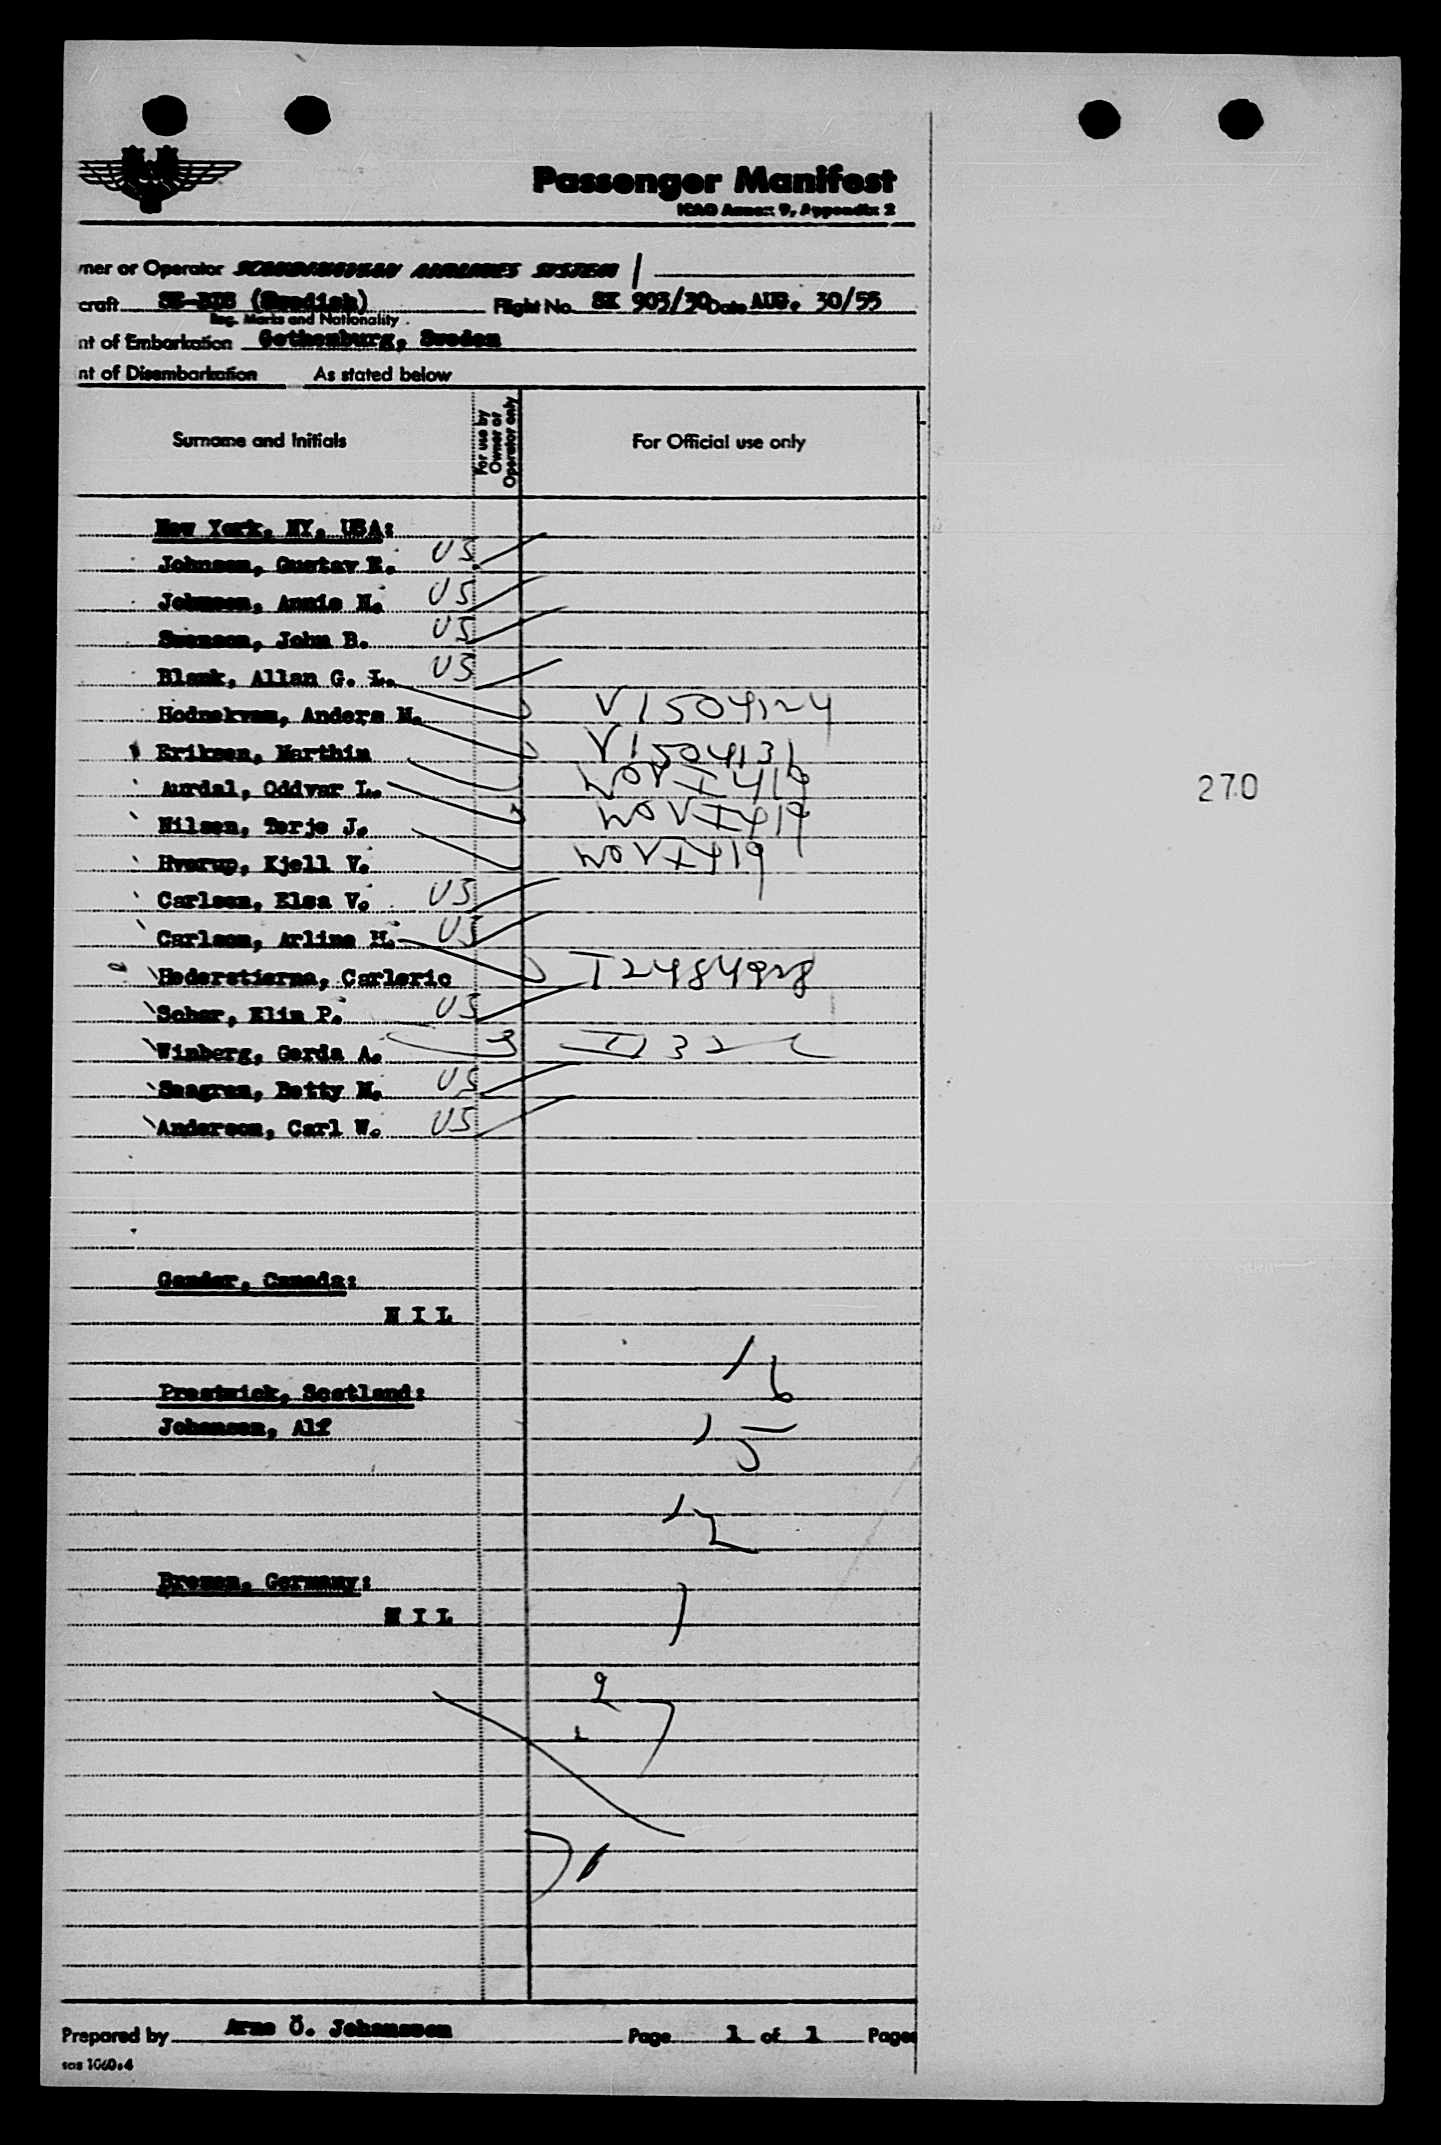 Passenger Manifest
ICAO Annex 9, Appendix 2
ner or Operator SCANDINAVIAN AIRLINES SYSTEM
craft (Swedish) Flight No. SK 903/30 Date AUG. 30/55
Reg. Marks and Nationality
nt of Embarkation Gothenburg, Sweden
nt of Disembarkation As stated below
Surname and Initials
For use by Owner or Operator only
For Official use only
New York, NY, USA:
Johnson, Gustav E. US
Johnson, Annie N. US
Swenson, John B. US
Blank, Allan G. L. US
Hodnekvam, Anders M. V1504124
Eriksen, Marthin V1504131
Aurdal, Oddvar L. NOV I 419
Nilsen, Terje J. NOV I 419
Hverup, Kjell V. NOV I 419
Carlson, Elsa V. US
Carlson, Arline H. US
Hederstierna, Carleric I2484928
Sober, Elin P. US
Winberg, Gerda A. 3
Seagren, Betty M. US
Anderson, Carl W. US
270
Gander, Canada:
N I L
16
Prestwick, Scotland:
Johansen, Alf
15
12
Bremen, Germany:
N I L
Prepared by Arne Ö. Johansson Page 1 of 1 Pages
sas 1060:4